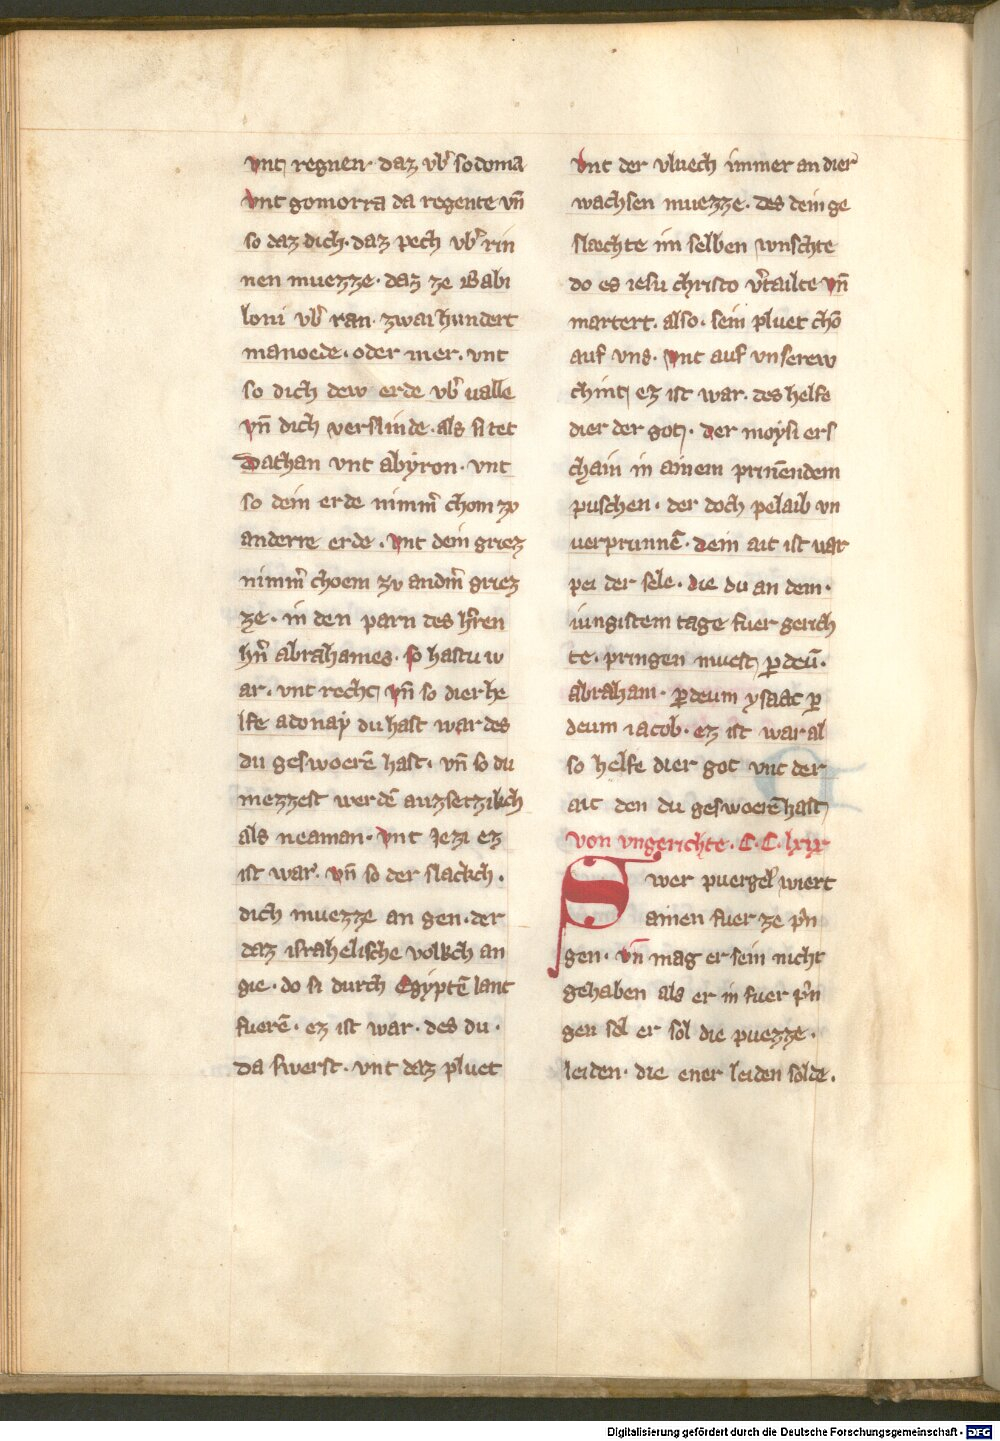 vnt regnen · daz vb̾ sodoma
vnt gomorra da regente vn̄
so daz dich · daz pech vb̾ rin
nen muezze · daz ze Babi
loni vb̾ ran · zwai hundert
manoede · oder mer · vnt
so dich dew erde vb̾ ualle
vn̄ dich verslinde · als si tet
Dathan vnt abyron · vnt
so dein erde nimm̾ chom zv
anderre erde · vnt dein griez
nimm̾ choem zv andm̾ griez
ze · in den parn des h̾ren
hn̾ abrahames · so hastu w
ar · vnt recht vn̄ so dier he
lfe adonaẏ du hast war des
du geswoerē hast · vn̄ so du
mezzest werdē auzsetzikch
als neaman · vnt Jezi ez
ist war · vn̄ so der slackch ·
dich muezze an gen · der
daz israhelische volkch an
gie · do si durch Egẏptē lant
fuerē · ez ist war · des du ·
da swerst · vnt daz pluet
vnt der vluech immer an dier
wachsen muezze · des dein ge
slæchte im selben wnschte
do es iesu christo v̾tailte vn̄
martert · also · sein pluet chō
auf vns · vnt auf vnserew
chint ez ist war · des helfe
dier der got · der moẏsi ers
chain in ainem prinēendem
puschen · der doch pelaib vn
uerprunnē · dein ait ist war
pei der sele · die du an dem ·
iungistem tage fuer gerich
te · pringen muest ꝑ deū ·
abraham · ꝑ deum ysaac ꝑ
deum iacob · ez ist war al
so helfe dier got vnt der
ait den du geswoerē hast
von vngerichte · C · C · lxix
Swer puergel wiert
ainen fuer ze p̾n
gen · vn̄ mag er sein nicht
gehaben als er in fuer p̾n
gen sol er sol die puezze ·
leiden · die ener leiden solde ·
Digitalisierung gefördert durch die Deutsche Forschungsgemeinschaft - DFG